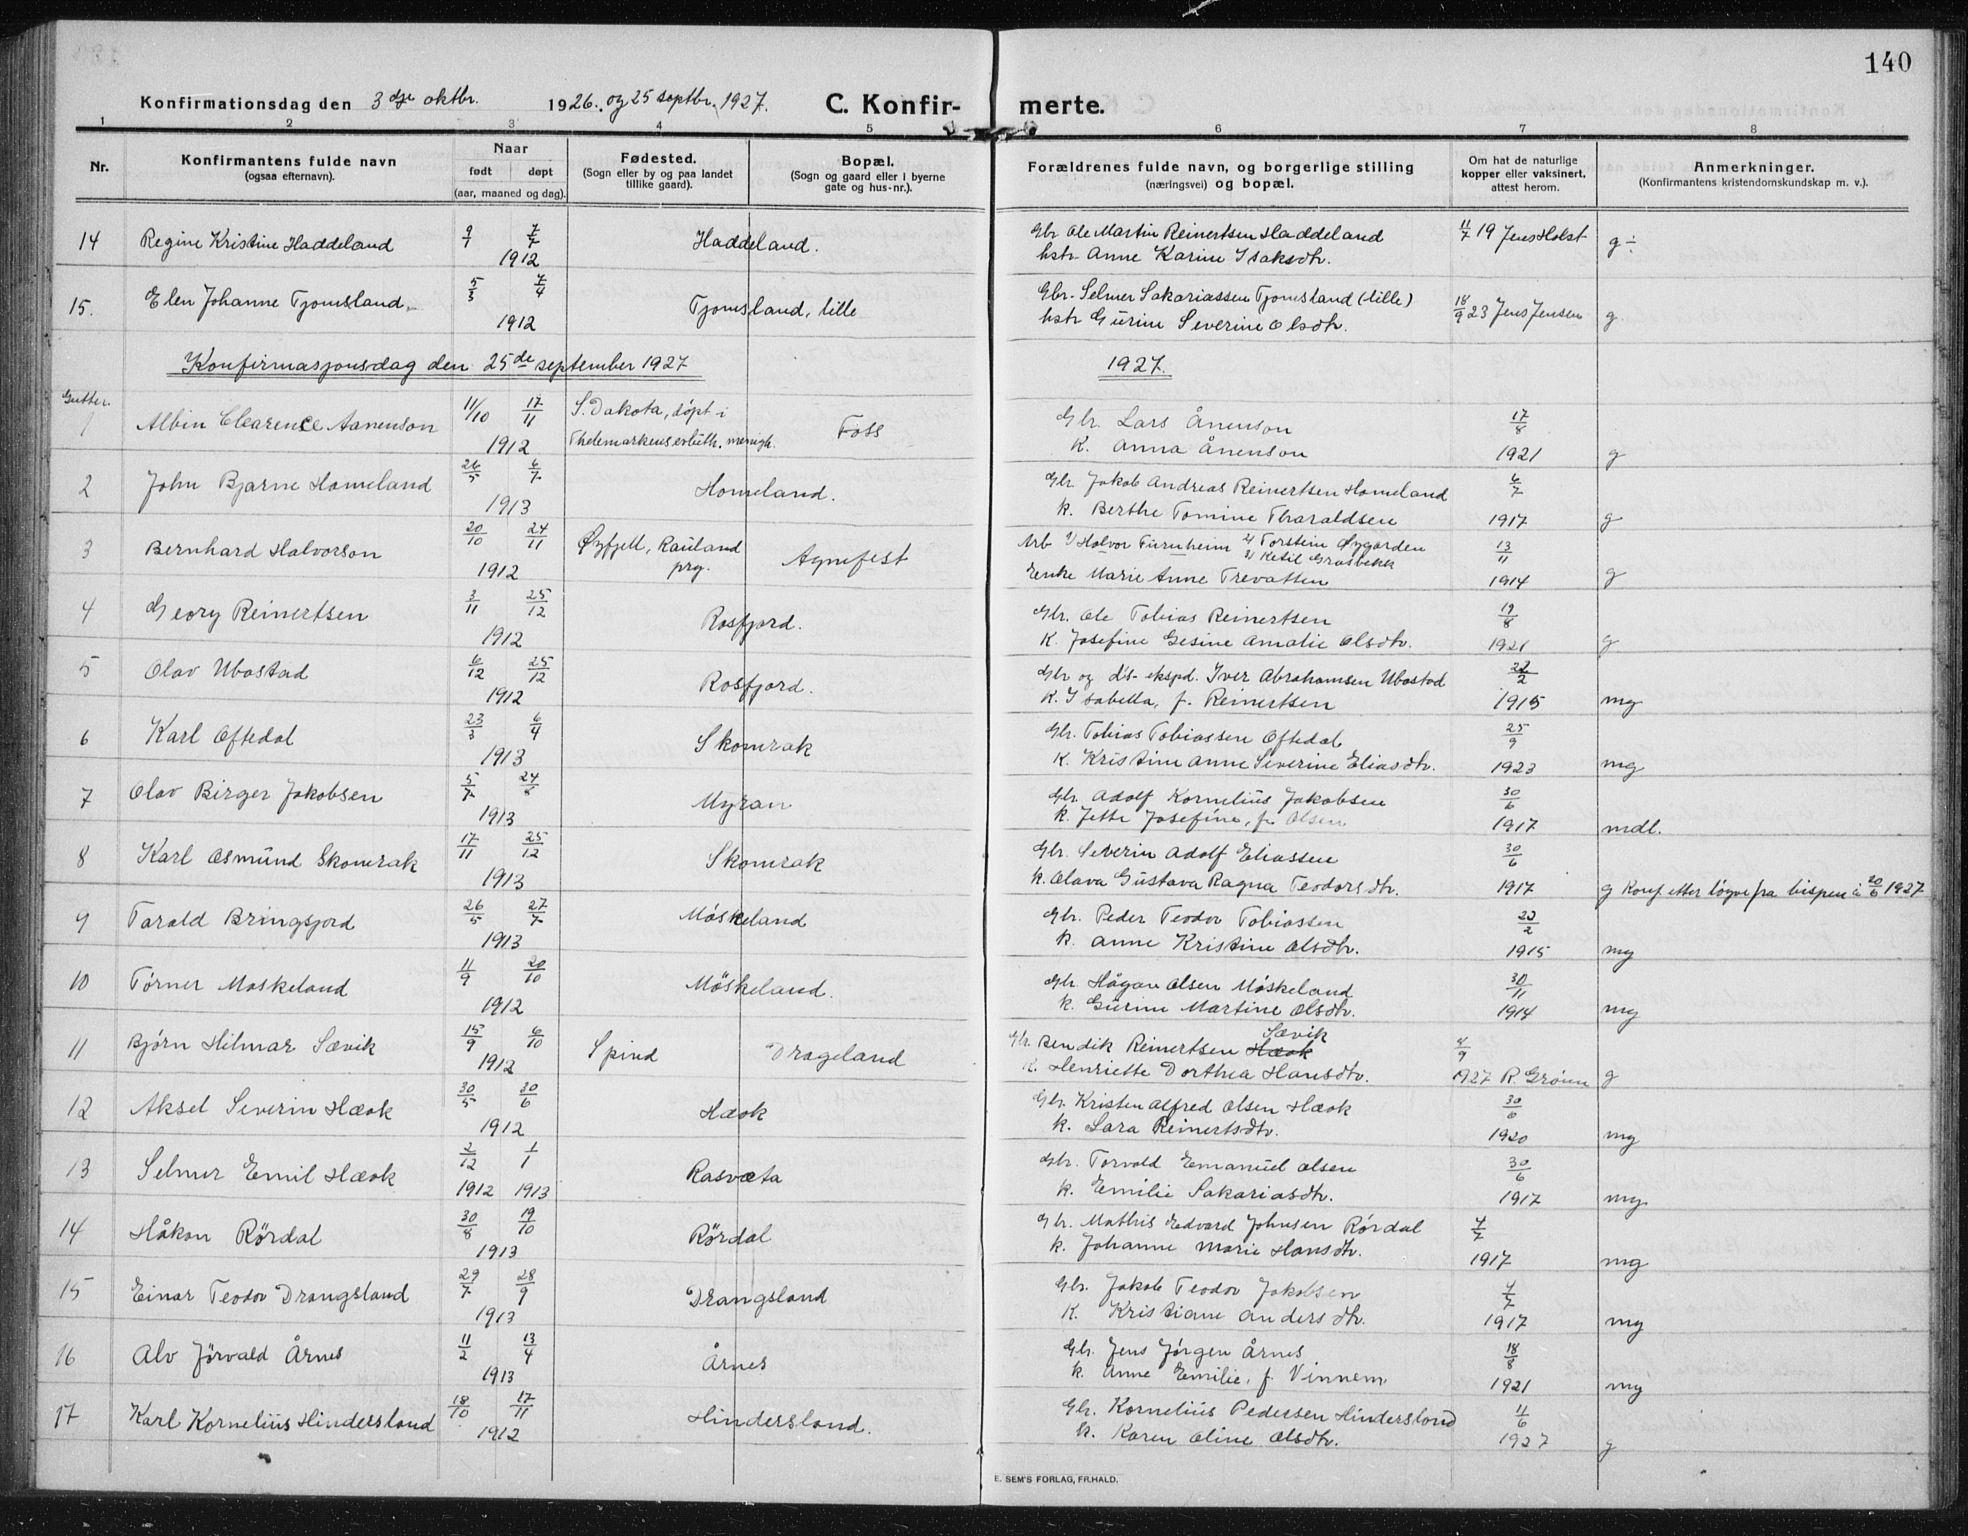 140
Konfirmationsdag den 3 dje oktbr. 1926. og 25 septbr. 1927. C. Konfir- merte.
1 2 3 4 5 6 7 8
Nr. Konfirmantens fulde navn (ogsaa efternavn). Naar født døpt (aar, maaned og dag). Fødested. (Sogn eller by og paa landet tillike gaard). Bopæl. (Sogn og gaard eller i byerne gate og hus-nr.). Forældrenes fulde navn, og borgerlige stilling (næringsvei) og bopæl. Om hat de naturlige kopper eller vaksinert, attest herom. Anmerkninger. (Konfirmantens kristendomskundskap m. v.).
14 Regine Kristine Haddeland 9/1 7/7 1912 Haddeland. Gbr Ole Martin Reinertsen Haddeland 11/7 19 Jens Holst g ÷
hstr Anne Karine Isaksdtr.
15. Elen Johanne Tjomsland 5/3 7/4 1912 Tjomsland, lille Gbr. Selmer Sakariassen Tjomsland (lille) 18/9 23 Jens Jensen g
hstr Gurine Severine Olsdtr.
Konfirmasjonsdag den 25de september 1927 1927.
Gutter.
1 Albin Clearence Aanenson 11/10 17/11 1912 S. Dakota, døpt i Thelemarkens evluth. menigh. Foss Gbr. Lars Ånenson 17/8 1921 g
K. Anna Ånenson
2 John Bjarne Homeland 26/5 6/7 1913 Homeland. Gbr. Jakob Andreas Reinertsen Homeland 6/7 1917 g
k. Berthe Tomine Tharaldsen
3 Bernhard Halvorson 20/10 24/11 1912 Øyfjell, Rauland prg. Agnefest Arb 1/ Halvor Furuheim 2/ Torstein Øygarden 3/ Ketil Grasbekk 13/11 1914 g
Enke Marie Anne Trevatten
4 Georg Reinertsen 3/11 25/12 1912 Rosfjord. Gbr. Ole Tobias Reinertsen 19/8 1921 g
K. Josefine Gesine Amalie Olsdtr.
5 Olav Ubostad 6/12 25/12 1912 Rosfjord. Gbr og d/s- ekspd. Iver Abrahamsen Ubostad 22/2 1915 mg
K. Isabella, f. Reinertsen
6 Karl Oftedal 23/3 6/4 1913 Skomrak Gbr. Tobias Tobiassen Oftedal 25/9 1923 mg
K. Kristine Anne Severine Eliasdtr.
7 Olav Birger Jakobsen 5/7 24/8 1913 Myran Gbr. Adolf Kornelius Jakobsen 30/6 1917 mdl.
k. Jette Josefine, f. Olsen
8 Karl Osmund Skomrak 17/11 25/12 1913 Skomrak Gbr. Severin Adolf Eliassen 30/6 1917 g Konf. etter løyve fra bispen i 20/6 1927
k. Olava Gustava Ragna Teodorsdtr.
9 Tarald Bringsjord 26/5 27/7 1913 Møskeland Gbr. Peder Teodor Tobiassen 22/2 1915 mg
k. Anne Kristine Olsdtr.
10 Tørner Møskeland 11/9 20/10 1912 Møskeland. Gbr. Hågan Olsen Møskeland 30/11 1914 mg
k. Gurine Martine Olsdtr.
11 Bjørn Hilmar Sævik 15/9 6/10 1912 Spind Drageland Gbr. Bendik Reinertsen Hæok Sævik 4/9 1927 R. Grønn g
K. Henriette Dorthea Hansdtr.
12 Aksel Severin Hæok 30/5 30/6 1912 Hæok Gbr. Kristen Alfred Olsen Hæok 30/6 1920 mg
k. Sara Reinertsdtr.
13 Selmer Emil Hæok 2/12 1/1 1912 1913 Rasvæta Gbr. Torvald Emanuel Olsen 30/6 1917 mg
k. Emilie Sakariasdtr.
14 Håkon Rørdal 30/8 19/10 1913 Rørdal Gbr. Mathis Edvard Johnsen Rørdal 4/7 1917 mg
k. Johanne Marie Hansdtr.
15 Einar Teodor Drangsland 29/7 28/9 1913 Drangsland Gbr. Jakob Teodor Jakobsen 4/7 1917 mg
K. Kristiane Andersdtr.
16 Alv Jørvald Årnes 11/2 13/4 1913 Årnes Gbr. Jens Jørgen Årnes 18/8 1921 mg
k. Anne Emilie, f. Vinnem
17 Karl Kornelius Hindersland 18/10 17/11 1912 Hindersland. Gbr. Kornelius Pedersen Hindersland 11/6 1927 g
k. Karen Oline Olsdtr.
E. SEM'S FORLAG, FR.HALD.